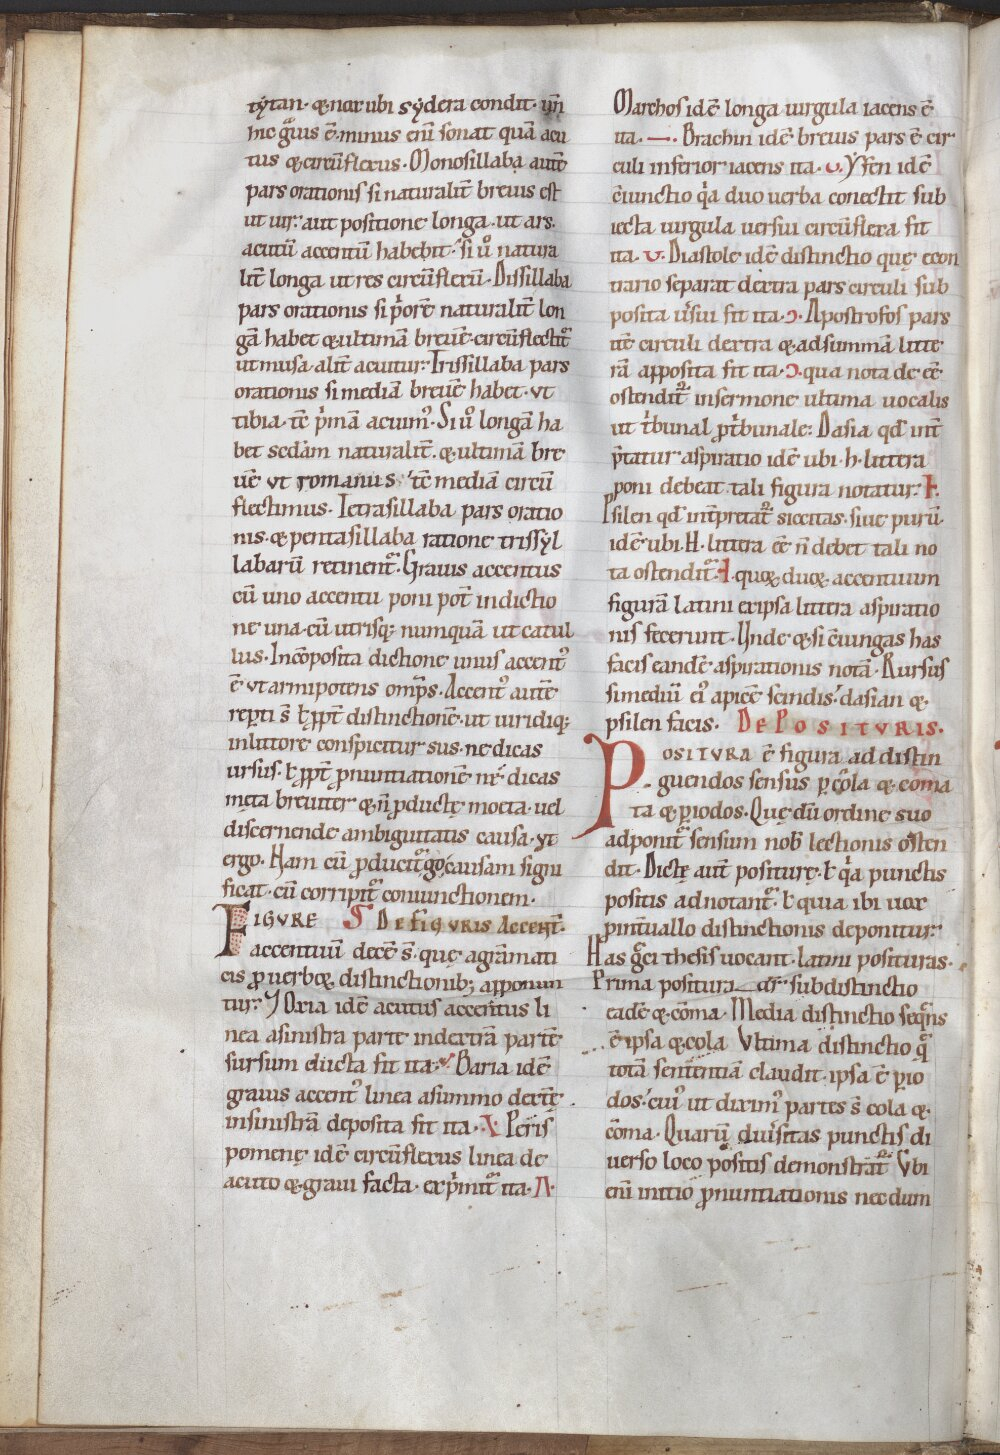 tẏtan· & nox ubi sẏdera condit· vn̄
hic g̊uis ē· minus enī sonat quā acu
tus & circūflexus· Monosillaba autē
pars orationis si naturalit̄ breuis est
ut uir· aut positione longa· ut ars·
acutū accentū habebit· si ů natura
lit̄ longa ut res circūflexū· Dissillaba
pars orationis si p̓orē naturalit̄ lon
gā habet & ultimā breuē· circūflectit᷑
ut musa· alit̄ acuitur· Trissillaba pars
orationis si mediā breuē habet· vt
tibia· tē p̓mā acuim᾿· Si ů longā ha
bet sedam naturalit̄· & ultimā bre
uē vt romanus· tē mediā circū
flectimus· Tetrasillaba pars oratio
nis· & pentasillaba ratione trissẏl
labarū retinent᷑· Grauis accentus
cū uno accentu poni pot̄ in dictio
ne una· cū utrisq; numquā ut catul
lus· Incōposita dictione unius accent᾿
ē vt armipotens omp̄s· Accent᾿ autē
rep̱ti s̄ t̵ p̱p̱t̄ distinctionē· ut uiridiq;
in littore conspicitur sus· ne dicas
ursus· t̵ p̱p̱t̄ ꝓnuntiationē n̄r̄ dicas
meta breuiter & n̄ ꝓducte̜ moeta· uel
discernende ambiguitatis causa· vt
ergo· Nam cū ꝓducit᷑ go, causam signi
ficat· cū corripit᷑ coniunctionem·
FIGVRE S̄ DE FIGVRIS ACCENT̄·
accentuū decē s̄· que̜ agrāmati
cis ꝓ uerboꝝ distinctionib; apponun
tur· Oxia idē acutus accentus li
nea asinistra parte in dextrā partē
sursum eiecta fit ita· Baria idē
grauis accent᾿ linea asummo dextre̜
in sinistrā deposita fit ita· \ Peris
pomene̜ idē circūflexus linea de
acuto & graui facta· exp̓mit᷑ ita· Λ·
Marchos idē longa uirgula iacens ē
ita· —· Brachin idē breuis pars ē cir
culi inferior iacens ita· ᴗ· Ẏfen idē
c̄iunctio q̓a duo uerba conectit sub
iecta uirgula uersui circūflexa fit
ita· ᴗ· Diastole idē distinctio que̜ econ
trario separat dextra pars circuli sub
posita u̓sui fit ita· ɔ· Apostrofos pars
itē circuli dextra & ad summā litte
rā apposita fit ita· ɔ· qua nota de eē
ostendit᷑ in sermone ultima uocalis
ut t̓bunal ꝓ t̓bunale· Dasia qd̄ int̄
p̱tatur aspiratio idē ubi ·h· littera
poni debeat tali figura notatur· Ⱶ·
Psilen qd̄ int̄pretat᷑ siccitas· siue purū·
idē ubi ·H· littera eē n̄ debet tali no
ta ostendit᷑· ⫞· quoꝝ duoꝝ accentuum
figurā latini ex ipsa littera aspiratio
nis fecerunt· Unde & si c̄iungas has
facis eandē aspirationis notā· Rursus
si mediū ei᾿ apicē scindis· dasian &
psilen facis· DE POSITVRIS·
POSITVRA ē figura ad distin
guendos sensus p̱ cōla & coma
ta & p̱iodos· Que̜ dū ordine suo
adponit᷑ sensum nob̄ lectionis osten
dit· Dicte̜ aut̄ positure̜· t̵ q̓a punctis
positis adnotant᷑· t̵ quia ibi uox
ꝓ int̄uallo distinctionis deponitur·
Has g̓ci thesis uocant· latini posituras·
Prima positura dr̄ subdistinctio
eadē & cōma· Media distinctio seq̄ns
ē ipsa & cola Vltima distinctio q̄
totā sententiā claudit· ipsa ē p̱io
dos· cui᾿ ut dixim᾿ partes s̄ cola &
cōma· Quarū diu̓sitas punctis di
uerso loco positis demonstrat᷑ Vbi
enī initio ꝓnuntiationis necdum